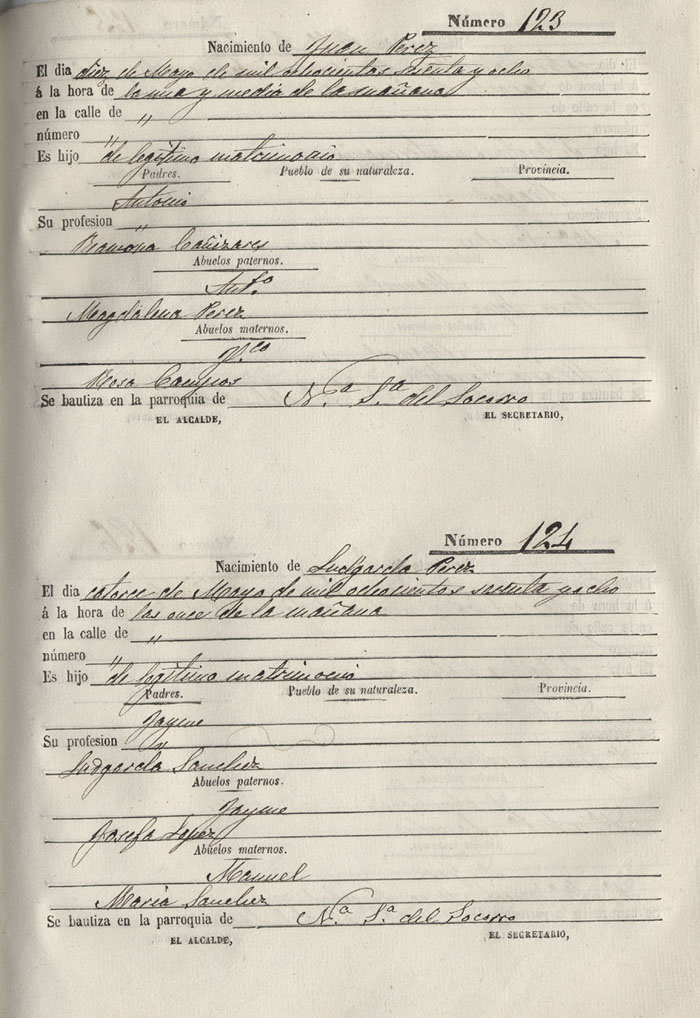 Número 123
Nacimiento de Juan Perez
El dia diez de Mayo de mil ochocientos sesenta y ocho
á la hora de la una y media de la mañana
en la calle de "
número "
Es hijo de legítimo matrimonio
Padres. Pueblo de su naturaleza. Provincia.
Antonio
Su profesion "
Ramona Cañizares
Abuelos paternos.
Ant.º
Magdalena Perez
Abuelos maternos.
Rosa Campos
Se bautiza en la parroquia de N.ª S.ª del Socorro
EL ALCALDE, EL SECRETARIO,
Número 124
Nacimiento de Ludgarda Perez
El dia catorce de Mayo de mil ochocientos sesenta y ocho
á la hora de las once de la mañana
en la calle de "
número "
Es hijo de legítimo matrimonio
Padres. Pueblo de su naturaleza. Provincia.
Jayme
Su profesion "
Ludgarda Sanchez
Abuelos paternos.
Jayme
Josefa Lopez
Abuelos maternos.
Manuel
Maria Sanchez
Se bautiza en la parroquia de N.ª S.ª del Socorro
EL ALCALDE, EL SECRETARIO,